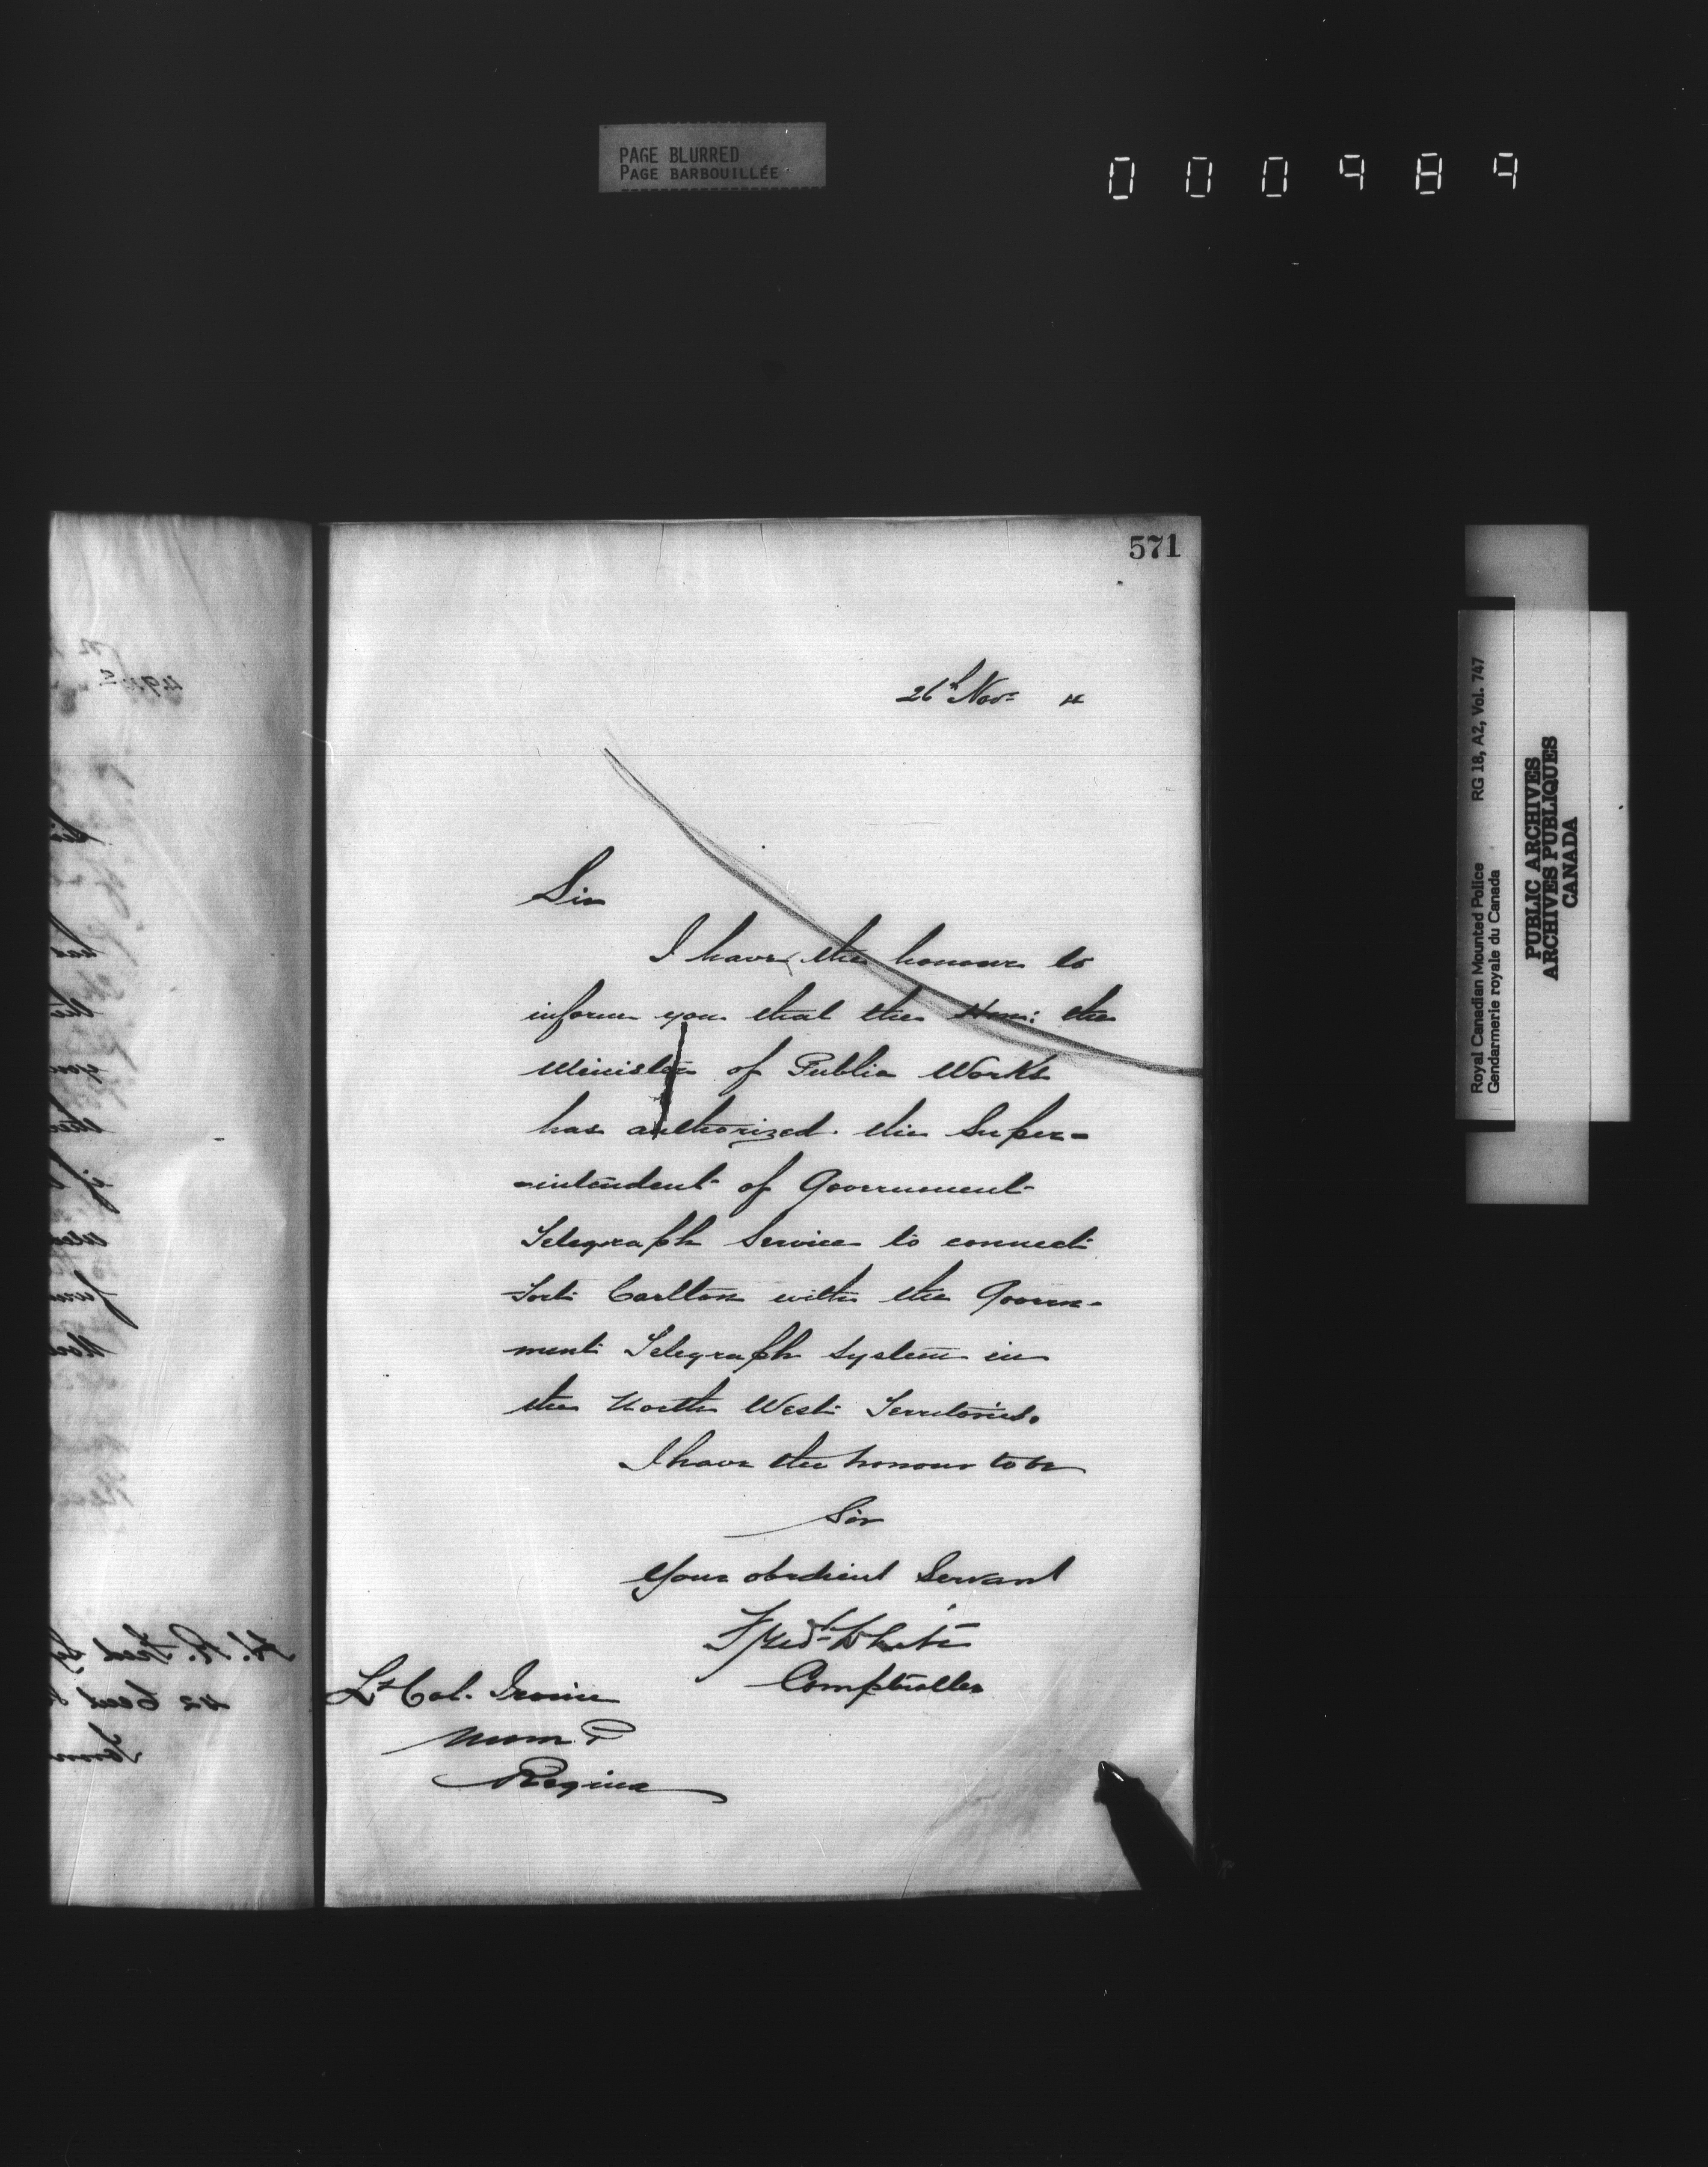 PAGE BLURRED
PAGE BARBOUILLÉE
000989
571
26th Nov. 4
Sir
I have the honour to
inform you that the Hon: the
Minister of Public Works
has authorized the Super-
-intendent of Government
Telegraph Service to connect
Fort Carlton with the Govern-
ment Telegraph System in
the North West Territories.
I have the honour to be
Sir
Your obedient Servant
Fred White
Comptroller
Lt Col. Irvine
NWMP
Regina
Royal Canadian Mounted Police RG 18, A2, Vol. 747
Gendarmerie royale du Canada
PUBLIC ARCHIVES
ARCHIVES PUBLIQUES
CANADA